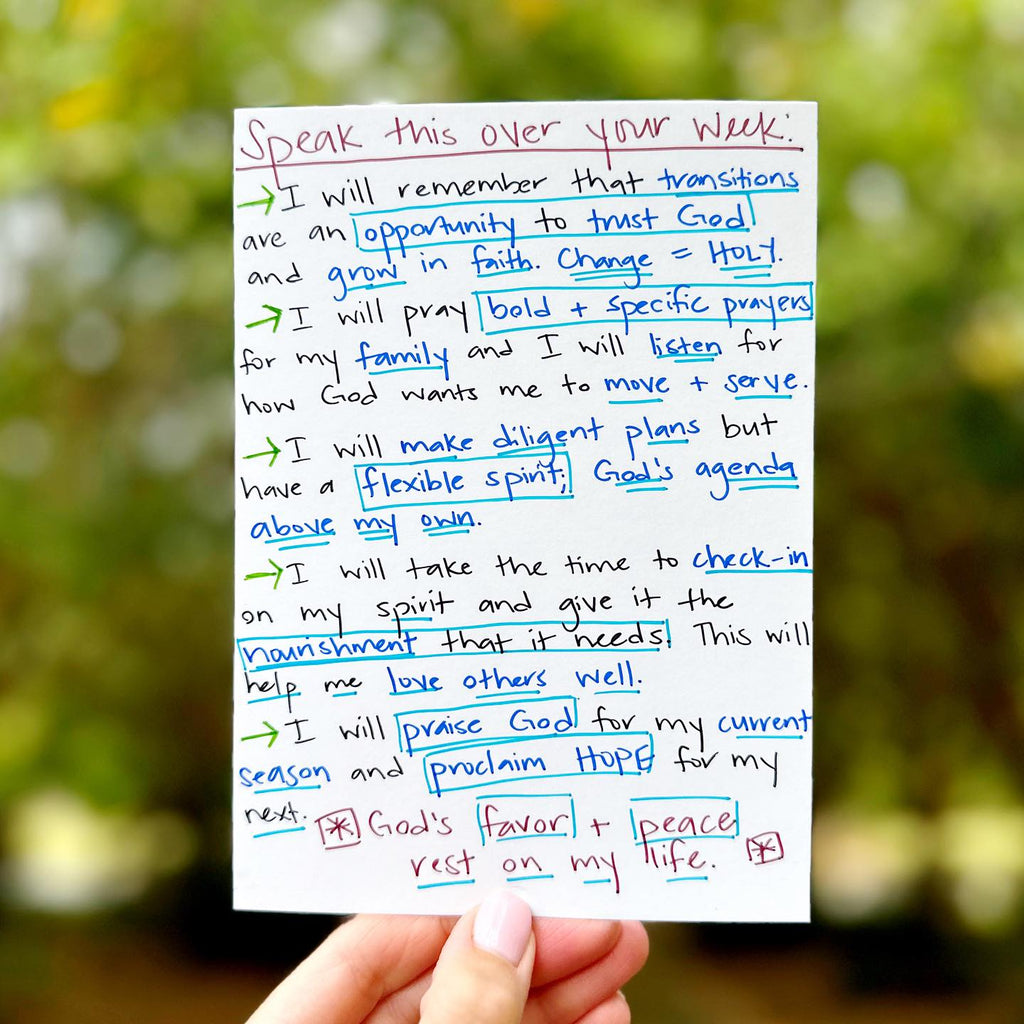 Speak this over your week:
→ I will remember that transitions
are an opportunity to trust God
and grow in faith. Change = HOLY.
→ I will pray bold + specific prayers
for my family and I will listen for
how God wants me to move + serve.
→ I will make diligent plans but
have a flexible spirit; God's agenda
above my own.
→ I will take the time to check-in
on my spirit and give it the
nourishment that it needs! This will
help me love others well.
→ I will praise God for my current
season and proclaim HOPE for my
next. * God's favor + peace
rest on my life. *